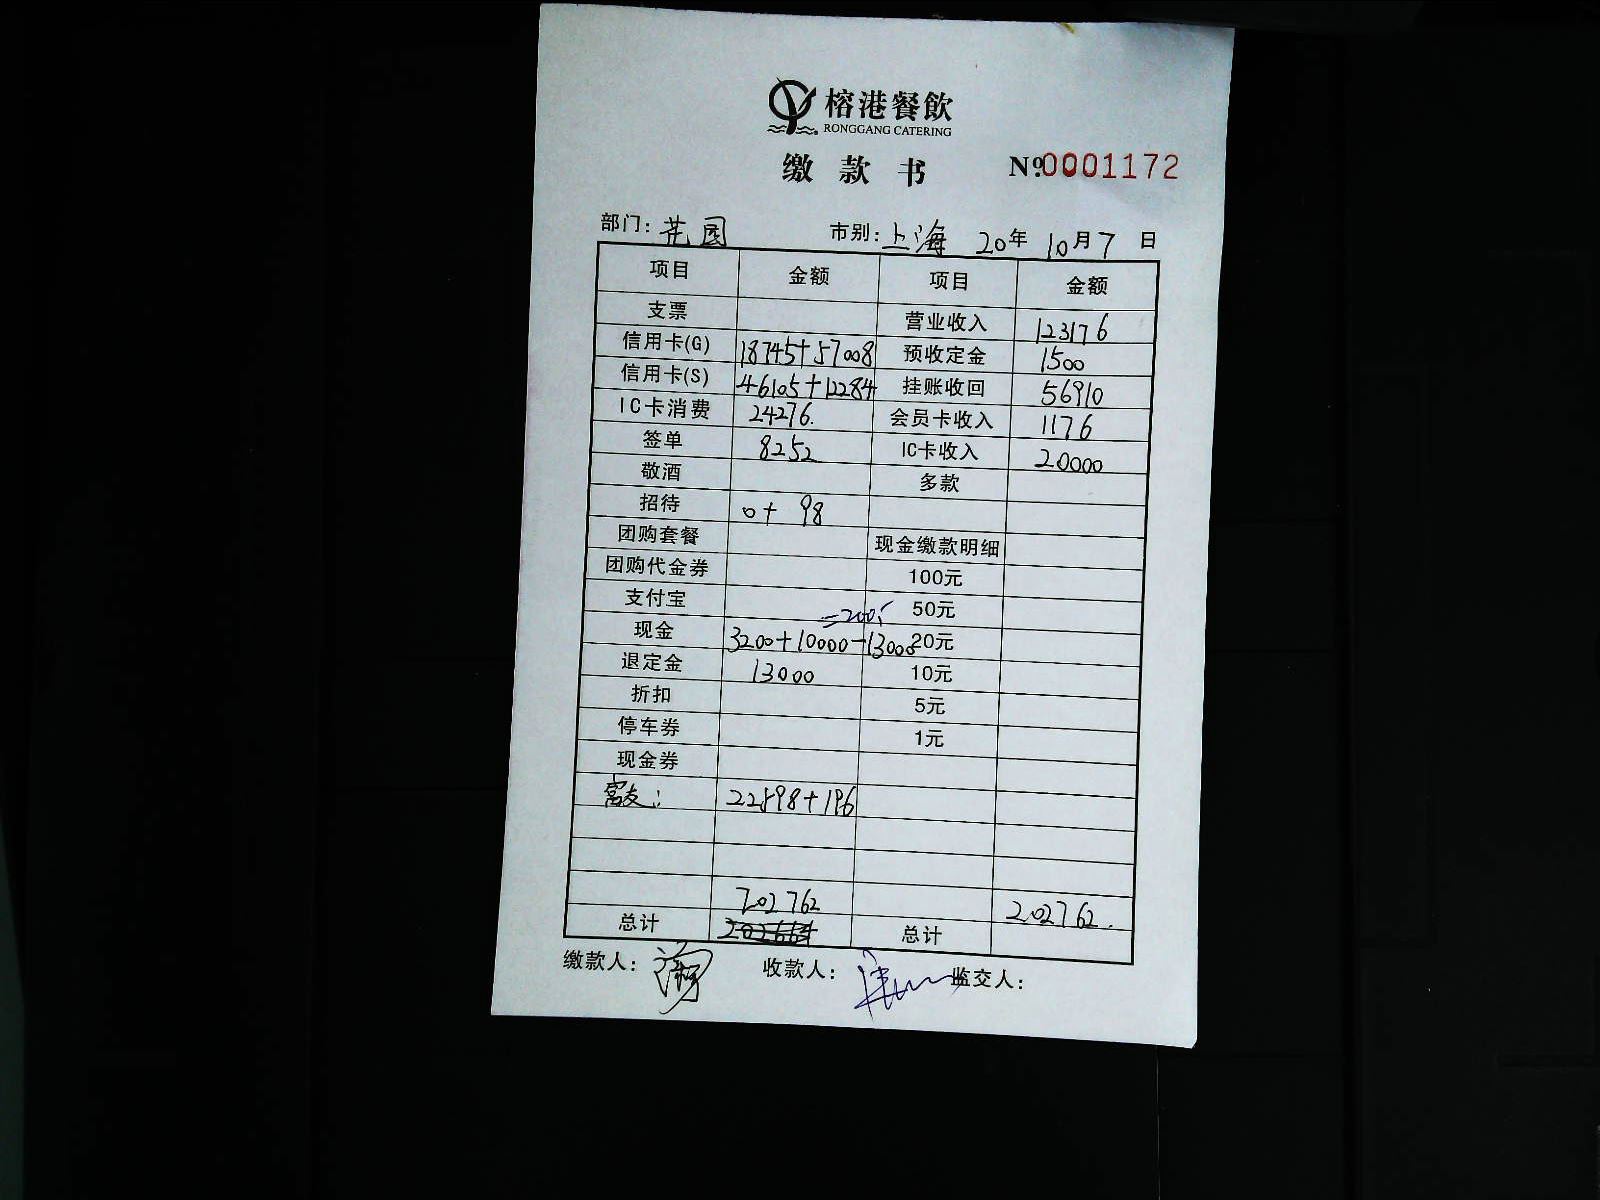 榕港餐飲
RONGGANG CATERING
缴款书 №0001172
部门: 花园 市别: 上海 20年 10月 7 日
项目 金额 项目 金额
支票 营业收入 123176
信用卡(G) 18745+57008 预收定金 1500
信用卡(S) 46105+12284 挂账收回 56910
IC卡消费 24276. 会员卡收入 1176
签单 8252 IC卡收入 20000
敬酒 多款
招待 0+ 98
团购套餐 现金缴款明细
团购代金券 100元
支付宝 =200. 50元
现金 3200+10000-13000 20元
退定金 13000 10元
折扣 5元
停车券 1元
现金券
富友: 22598+196
202762 202762.
总计 202664 总计
缴款人: 收款人: 监交人: